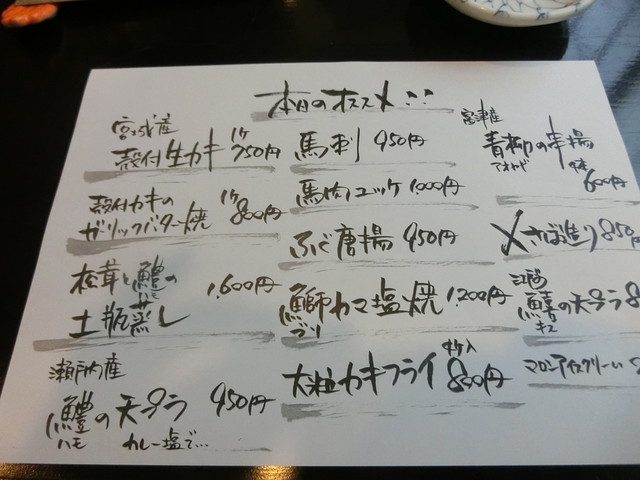 本日のオススメ!!
宮城産
殻付生カキ 1ケ 750円
殻付カキの
ガーリックバター焼 1ケ 800円
松茸と鱧の
土瓶蒸し 1,600円
瀬戸内産
鱧の天プラ 950円
ハモ カレー塩で…
馬刺 950円
馬肉ユッケ 1,000円
ふぐ唐揚 950円
鰤カマ塩焼 1,200円
ブリ
大粒カキフライ 4ケ入 800円
富津産
青柳の串揚
アオヤギ 2本 600円
〆さば造り 850円
江戸前
鱚の天プラ 8
キス
マロンアイスクリーム